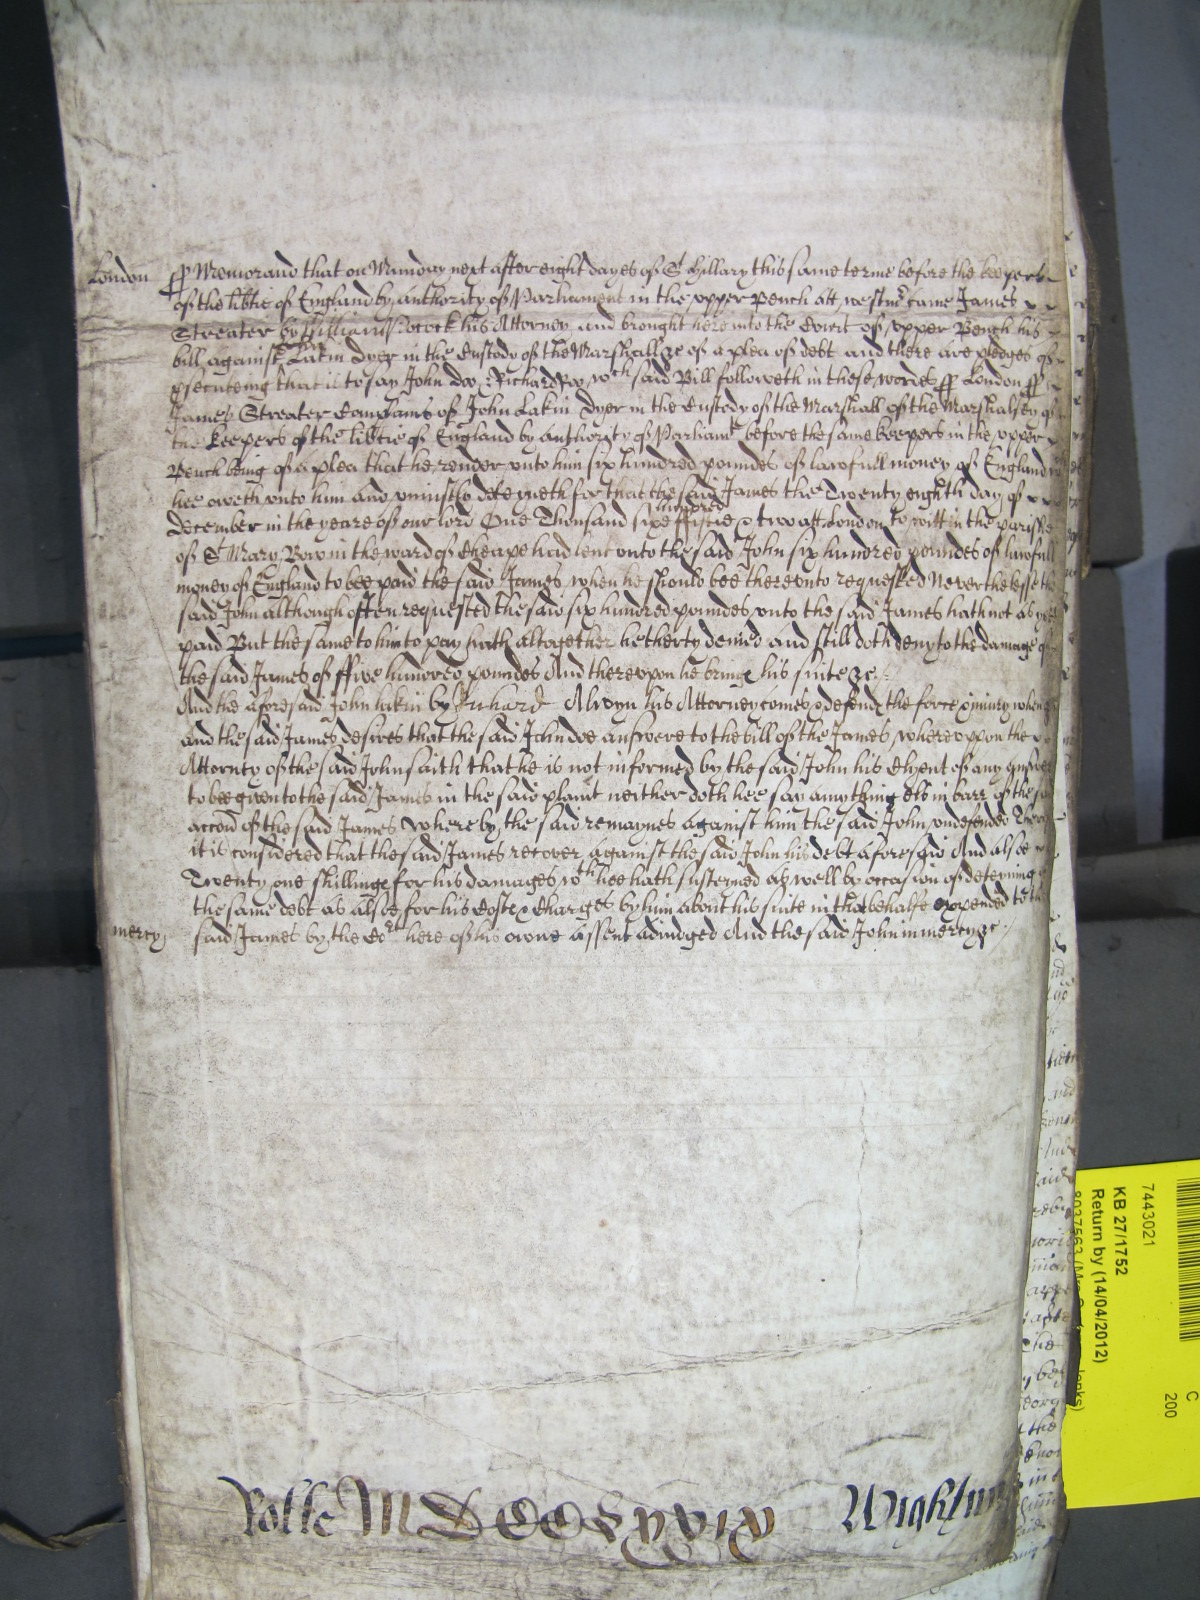 London ss Memorand that on Munday next after eight dayes of St Hillary this same terme before the keepers
of the libtie of England by authority of Parliament in the upper Bench att westmr came James
Streater by William Pocock his Attorney and brought here into the Court of upper Bench his
bill against Lakin dyer in the Custody of the Marshall &c of a plea of debt and there are pledges of
psecuteing that is to say John doo Richard Roo wch said Bill followeth in these wordes ss London ss
James Streater Complaines of John Lakin dyer in the Custody of the Marshall of the Marshalsey of
the Keepers of the libtie of England by authority of Parliamt before the same keepers in the upper
Bench being of a plea that he render unto him six hundred poundes of lawfull money of England
hee oweth unto him and uniustly deteyneth for that the said James the Twenty eighth day of
december in the yeare of our lord One Thousand sixe hundred fiftie & two att London to witt in the parishe
of St Mary Bow in the ward of Cheape had lent unto the said John six hundred poundes of lawfull
money of England to bee paid the said James when he should bee thereunto requested Neverthelesse the
said John although often requested the said six hundred poundes unto the said James hath not as yet
paid But the same to him to pay hath altogether hetherto denied and still doth deny to the damage of
the said James of ffive hundred poundes And thereupon he bringe his suite &c
And the aforesaid John lakin by Richard Alwyn his Attorney comes & defend the force & iniury when
and the said James desires that the said John doe answere to the bill of the James whereuppon the
Attorney of the said John saith that he is not informed by the said John his Clyent of any answer
to bee given to the said James in the said plaint neither doth hee say anything els in barr of the
accon of the said James whereby the said remaynes against him the said John undefended
it is considered that the said James recover against the said John his debt aforesaid And alsoe
Twenty one shillinge for his damages wch hee hath susteined as well by occasion of deteyning
the same debt as alsoe for his Coste & Charges by him about his suite in that behalfe expended to the
mercy said James by the Cort here of his owne assent adiudged And the said John in mercy &c
Rolle MDCCLxxix Wightw
7443021
KB 27/1752
Return by (14/04/2012)
8037563
C
200